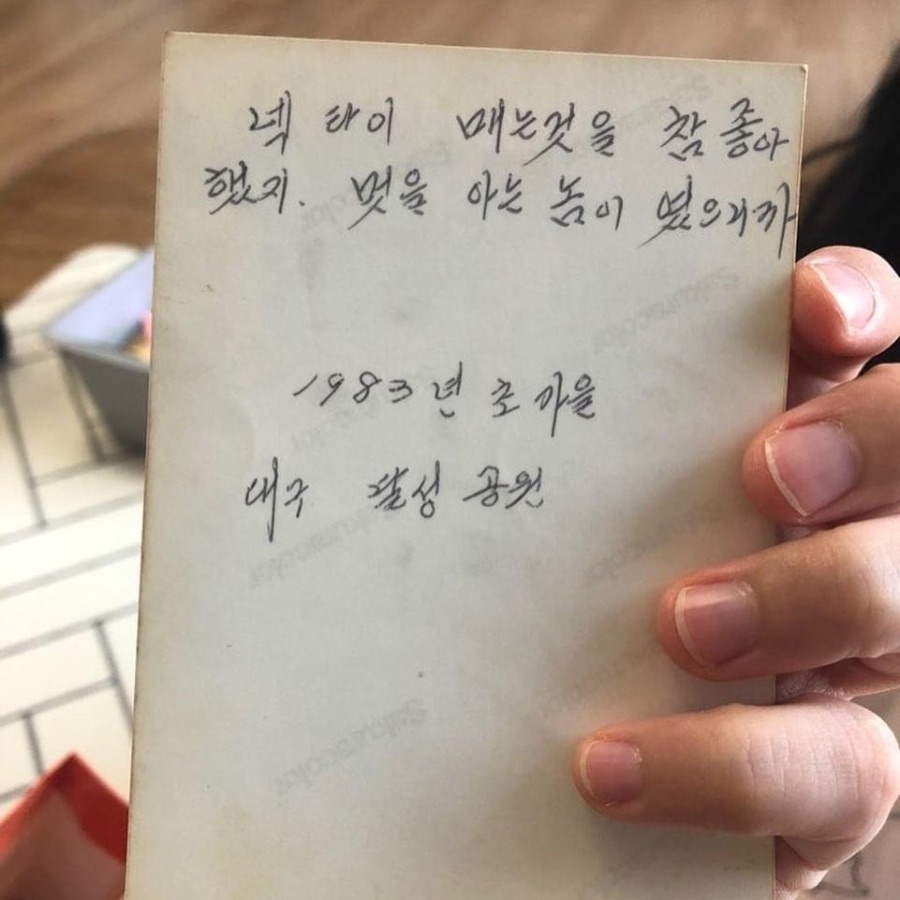 넥 타이 매는것을 참 좋아
했지. 멋을 아는 놈이 였으니까
1983년 초 가을
대구 달성 공원